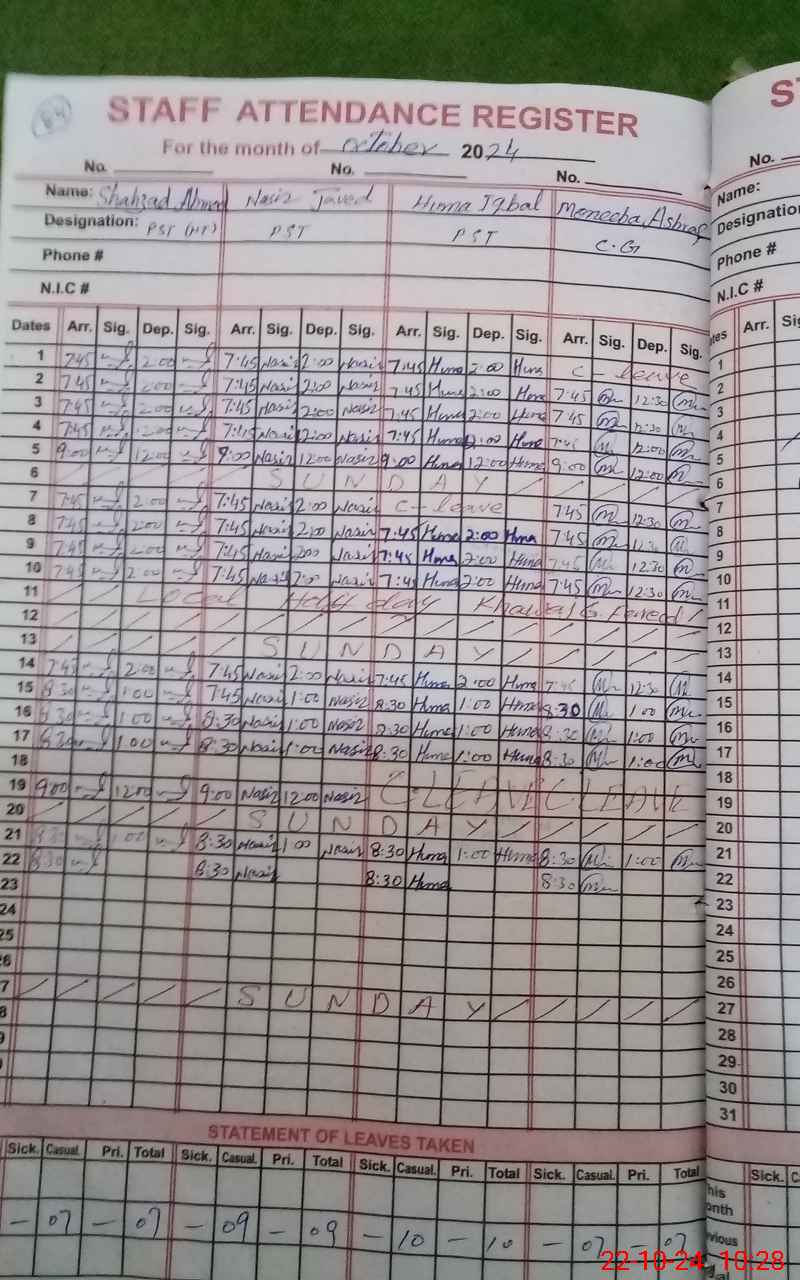 84
STAFF ATTENDANCE REGISTER
For the month of October 2024
No. No. No.
Name: Shahzad Ahmed Nasir Javed Huma Iqbal Meneeba Ashraf
Designation: PST (HT) PST PST C.G
Phone #
N.I.C #
Dates Arr. Sig. Dep. Sig. Arr. Sig. Dep. Sig. Arr. Sig. Dep. Sig. Arr. Sig. Dep. Sig.
1 7:45 2:00 7:45 Nasir 2:00 Nasir 7:45 Huma 2:00 Huma C-leave
2 7:45 2:00 7:45 Nasir 2:00 Nasir 7:45 Huma 2:00 Huma 7:45 12:30
3 7:45 2:00 7:45 Nasir 2:00 Nasir 7:45 Huma 2:00 Huma 7:45 12:30
4 7:45 2:00 7:45 Nasir 2:00 Nasir 7:45 Huma 2:00 Huma 7:45 12:00
5 9:00 12:00 9:00 Nasir 12:00 Nasir 9:00 Huma 12:00 Huma 9:00 12:00
6 SUNDAY
7 7:45 2:00 7:45 Nasir 2:00 Nasir C-leave 7:45 12:30
8 7:45 2:00 7:45 Nasir 2:00 Nasir 7:45 Huma 2:00 Huma 7:45 12:30
9 7:45 2:00 7:45 Nasir 2:00 Nasir 7:45 Huma 2:00 Huma 7:45 12:30
10 7:45 2:00 7:45 Nasir 2:00 Nasir 7:45 Huma 2:00 Huma 7:45 12:30
11 Local Holy day Khawaja G. Fareed
12
13 SUNDAY
14 7:45 2:00 7:45 Nasir 2:00 Nasir 7:45 Huma 2:00 Huma 7:45 12:30
15 8:30 1:00 7:45 Nasir 1:00 Nasir 8:30 Huma 1:00 Huma 8:30 1:00
16 8:30 1:00 8:30 Nasir 1:00 Nasir 8:30 Huma 1:00 Huma 8:30 1:00
17 8:30 1:00 8:30 Nasir 1:00 Nasir 8:30 Huma 1:00 Huma 8:30 1:00
18
19 9:00 12:00 9:00 Nasir 12:00 Nasir C.LEAVE C.LEAVE
20 SUNDAY
21 8:30 1:00 8:30 Nasir 1:00 Nasir 8:30 Huma 1:00 Huma 8:30 1:00
22 8:30 8:30 Nasir 8:30 Huma 8:30
23
24
25
26
27 SUNDAY
28
STATEMENT OF LEAVES TAKEN
Sick. Casual. Pri. Total Sick. Casual. Pri. Total Sick. Casual. Pri. Total Sick. Casual. Pri. Total
- 07 - 07 - 09 - 09 - 10 - 10 - 07 - 07
No.
Name:
Designation
Phone #
N.I.C #
Arr.
1
2
3
4
5
6
7
8
9
10
11
12
13
14
15
16
17
18
19
20
21
22
23
24
25
26
27
28
29
30
31
Sick.
22-10-24 10:28